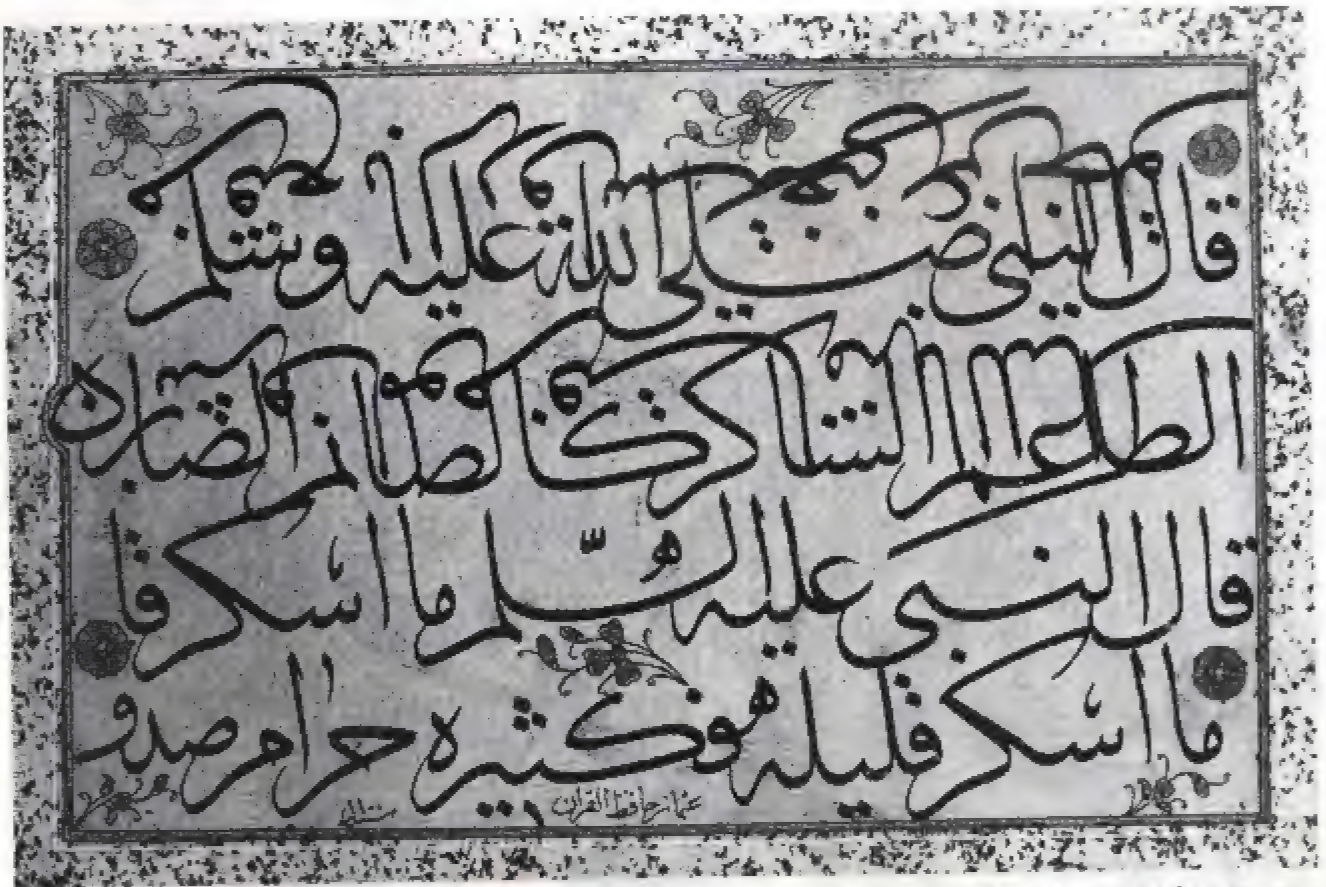 قال النبي صلى الله عليه وسلم
الطاعم الشاكر كالصائم الصابر
قال النبي عليه السلم ما اسكر قا
ما اسكر قليله هو فكثيره حرام صدو
حافظ القران